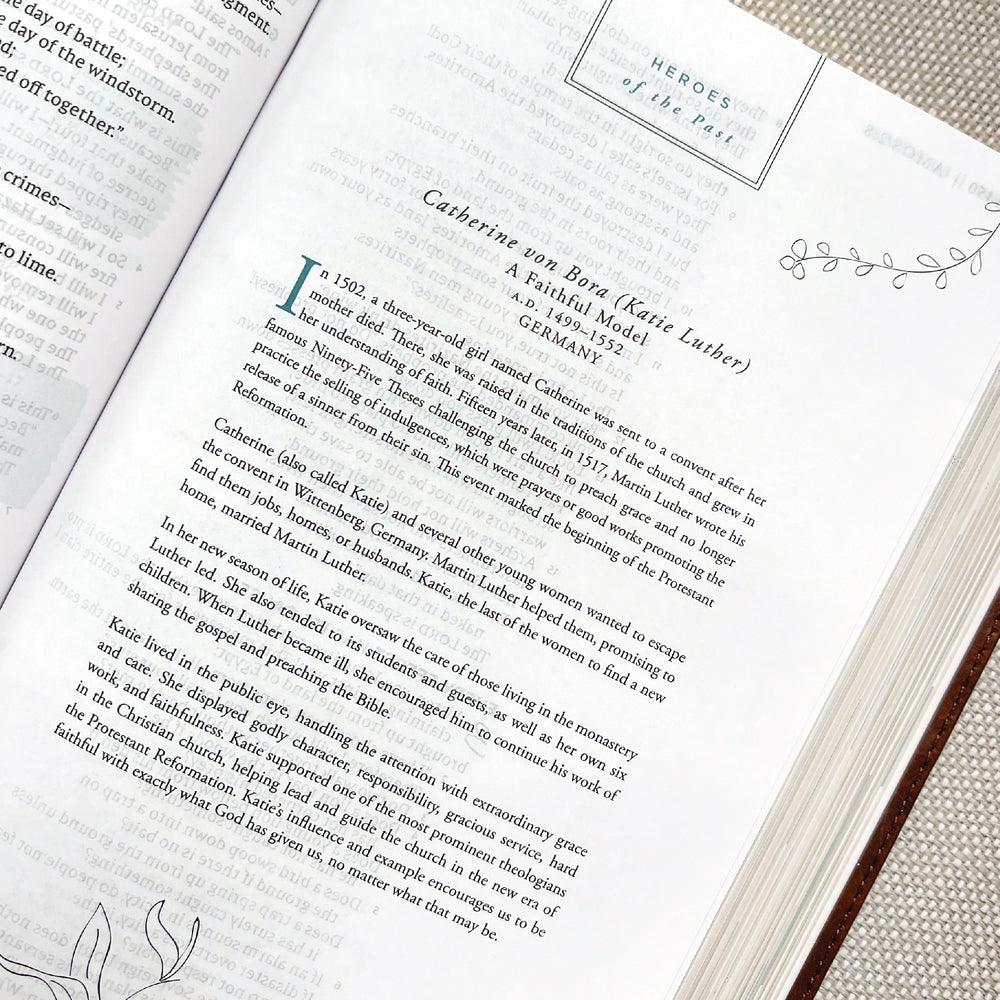 e day of battle;
e day of the windstorm.
ed off together.”
crimes–
to lime.
HEROES
of the Past
Catherine von Bora (Katie Luther)
A Faithful Model
A.D. 1499–1552
GERMANY
In 1502, a three-year-old girl named Catherine was sent to a convent after her
mother died. There, she was raised in the traditions of the church and grew in
her understanding of faith. Fifteen years later, in 1517, Martin Luther wrote his
famous Ninety-Five Theses challenging the church to preach grace and no longer
practice the selling of indulgences, which were prayers or good works promoting the
release of a sinner from their sin. This event marked the beginning of the Protestant
Reformation.
Catherine (also called Katie) and several other young women wanted to escape
the convent in Wittenberg, Germany. Martin Luther helped them, promising to
find them jobs, homes, or husbands. Katie, the last of the women to find a new
home, married Martin Luther.
In her new season of life, Katie oversaw the care of those living in the monastery
Luther led. She also tended to its students and guests, as well as her own six
children. When Luther became ill, she encouraged him to continue his work of
sharing the gospel and preaching the Bible.
Katie lived in the public eye, handling the attention with extraordinary grace
and care. She displayed godly character, responsibility, gracious service, hard
work, and faithfulness. Katie supported one of the most prominent theologians
in the Christian church, helping lead and guide the church in the new era of
the Protestant Reformation. Katie’s influence and example encourages us to be
faithful with exactly what God has given us, no matter what that may be.